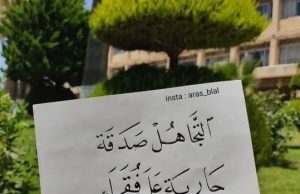 insta : aras_blal
التَّجَاهُلْ صَدَقَة
جَارِيَة عَلَى فُقَرَاء